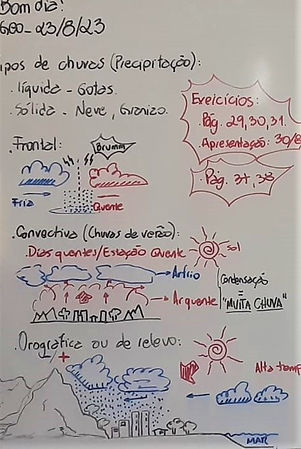 Bom dia!
23/8/23
ipos de chuvas (Precipitação):
. líquida - Gotas.
. Sólida - Neve, Granizo.
Exercícios:
. Pág. 29, 30, 31.
. Apresentação: 30/8
. Pág. 37, 38
. Frontal:
Brumm
Fria
Quente
. Convectiva (Chuvas de verão):
Dias quentes/Estação Quente
Sol
Ar frio
Condensação
=
"MUITA CHUVA"
Ar quente
. Orográfica ou de relevo:
- +
Alta temp
MAR